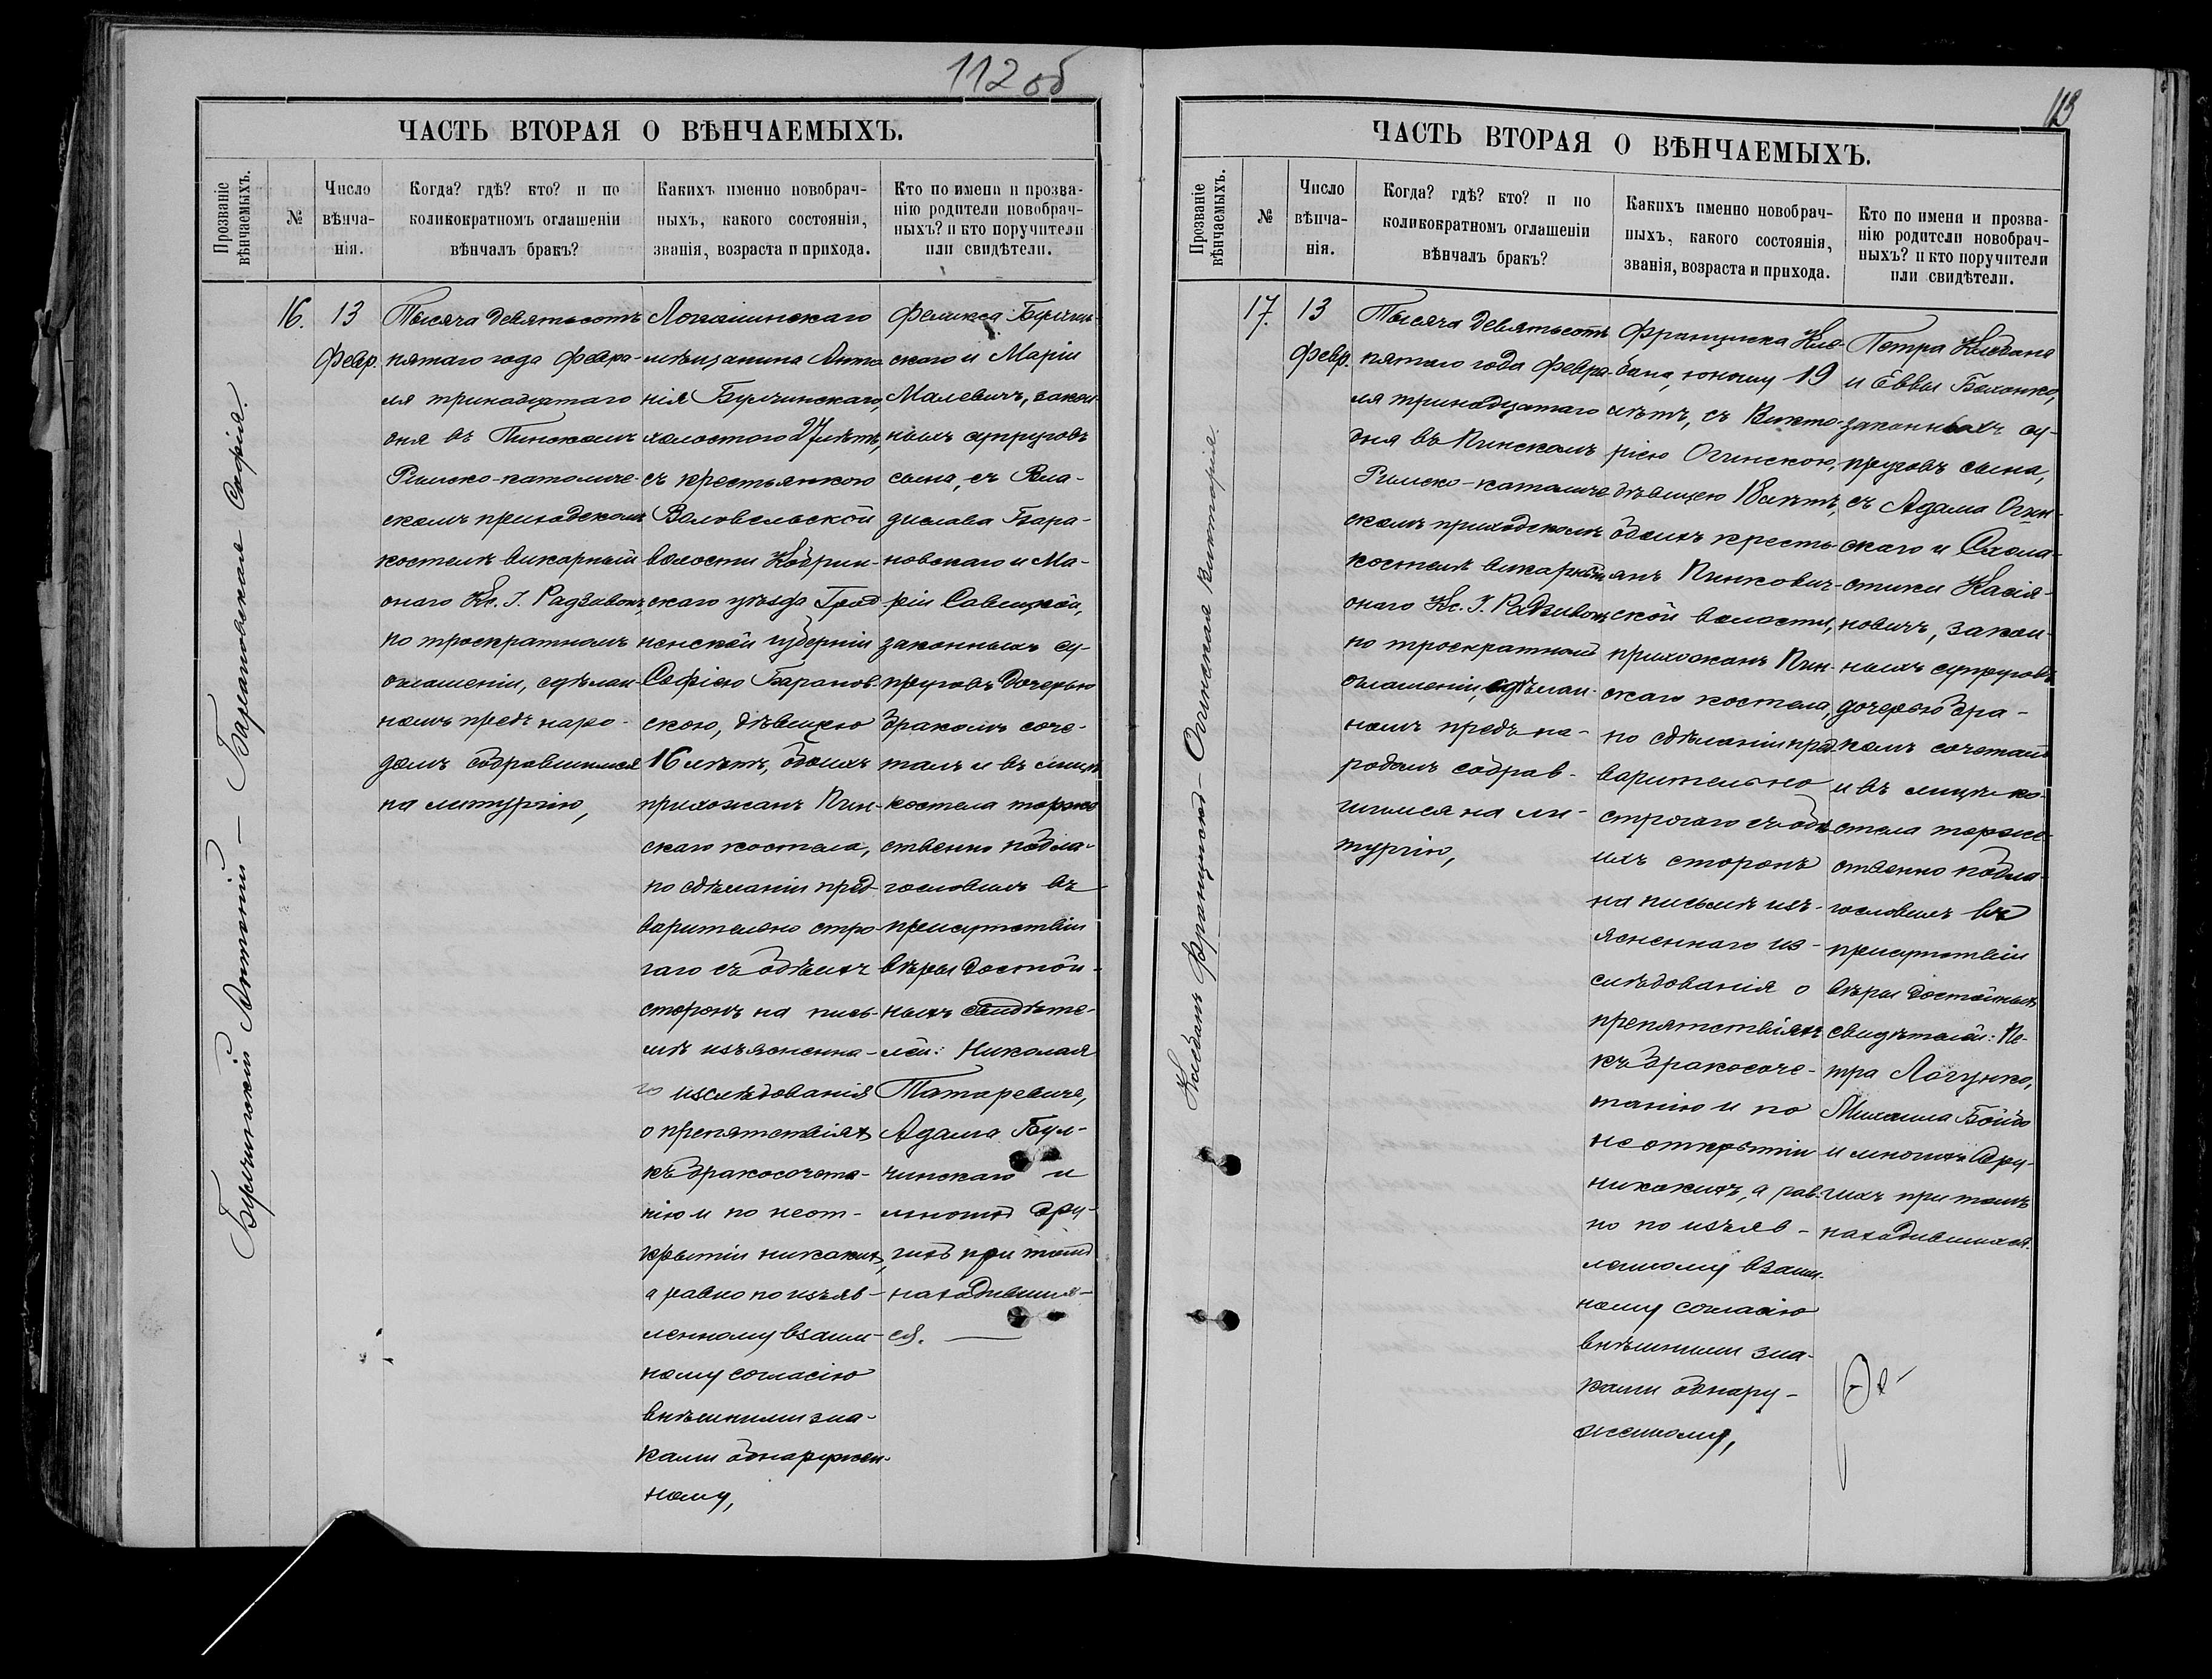 112 об
ЧАСТЬ ВТОРАЯ О ВѢНЧАЕМЫХЪ.
Прозваніе вѣнчаемыхъ.
№
Число вѣнча-нія.
Когда? гдѣ? кто? и по коликократномъ оглашеніи вѣнчалъ бракъ?
Какихъ именно новобрач-ныхъ, какого состоянія, званія, возраста и прихода.
Кто по имени и прозва-нію родители новобрач-ныхъ? и кто поручители или свидѣтели.
Булчинскій Антоній – Барановская Софія.
16.
13
Февр.
Тысяча девятьсотъ
пятаго года февра-
ля тринадцатаго
дня въ Пинскомъ
Римско-католиче-
скомъ приходскомъ
костелѣ викарный
онаго Кс. І. Радзивонъ,
по троекратномъ
оглашеніи, сдѣлан-
номъ предъ наро-
домъ собравшимся
на литургію,
Логишинскаго
мѣщанина Анто-
нія Булчинскаго,
холостого 27 лѣтъ,
съ крестьянкою
Воловельской
волости Кобрин-
скаго уѣзда Грод-
ненской губерніи
Софіею Баранов-
скою, дѣвицею
16 лѣтъ, обоихъ
прихожанъ Пин-
скаго костела,
по сдѣланіи пред-
варительно стро-
гаго съ обѣихъ
сторонъ на пись-
мѣ изъясненна-
го изслѣдованія
о препятствіяхъ
къ бракосочета-
нію и по неот-
крытіи никакихъ,
а равно по изъяв-
ленному взаим-
ному согласію
внѣшними зна-
ками обнаружен-
ному,
Феликса Булчин-
скаго и Маріи
Малевичъ, закон-
ныхъ супруговъ
сына, съ Вла-
дислава Бара-
новскаго и Ма-
ріи Савицкой,
законныхъ су-
пруговъ дочерью
бракомъ соче-
талъ и въ лицѣ
костела торже-
ственно побла-
гословилъ въ
присутствіи
вѣры достой-
ныхъ свидѣте-
лей: Николая
Татаревича,
Адама Бул-
чинскаго и
многихъ дру-
гихъ при томъ
находивших-
ся.
113
ЧАСТЬ ВТОРАЯ О ВѢНЧАЕМЫХЪ.
Прозваніе вѣнчаемыхъ.
№
Число вѣнча-нія.
Когда? гдѣ? кто? и по коликократномъ оглашеніи вѣнчалъ бракъ?
Какихъ именно новобрач-ныхъ, какого состоянія, званія, возраста и прихода.
Кто по имени и прозва-нію родители новобрач-ныхъ? и кто поручители или свидѣтели.
Клебанъ Францишекъ – Огинская Викторія.
17.
13
Февр.
Тысяча девятьсотъ
пятаго года февра-
ля тринадцатаго
дня въ Пинскомъ
Римско-католиче-
скомъ приходскомъ
костелѣ викарный
онаго Кс. І. Радзивонъ,
по троекратномъ
оглашеніи, сдѣлан-
номъ предъ на-
родомъ собрав-
шимся на ли-
тургію,
Франциска Кле-
бана, юношу 19
лѣтъ, съ Викто-
ріею Огинскою,
дѣвицею 18 лѣтъ,
обоихъ кресть-
янъ Пинкович-
ской волости,
прихожанъ Пин-
скаго костела,
по сдѣланіи пред-
варительно
строгаго съ обѣ-
ихъ сторонъ
на письмѣ изъ-
ясненнаго из-
слѣдованія о
препятствіяхъ
къ бракосоче-
танію и по
не открытіи
никакихъ, а рав-
но по изъяв-
ленному взаим-
ному согласію
внѣшними зна-
ками обнару-
женному,
Петра Клебана
и Еввы
законныхъ су-
пруговъ сына,
съ Адама Огин-
скаго и Схола-
стики Касія-
новичъ, закон-
ныхъ супруговъ
дочерью бра-
комъ сочеталъ
и въ лицѣ ко-
стела торже-
ственно побла-
гословилъ въ
присутствіи
вѣры достойныхъ
свидѣтелей: Пе-
тра
Михаила Бойко
и многихъ дру-
гихъ при томъ
находившихся.